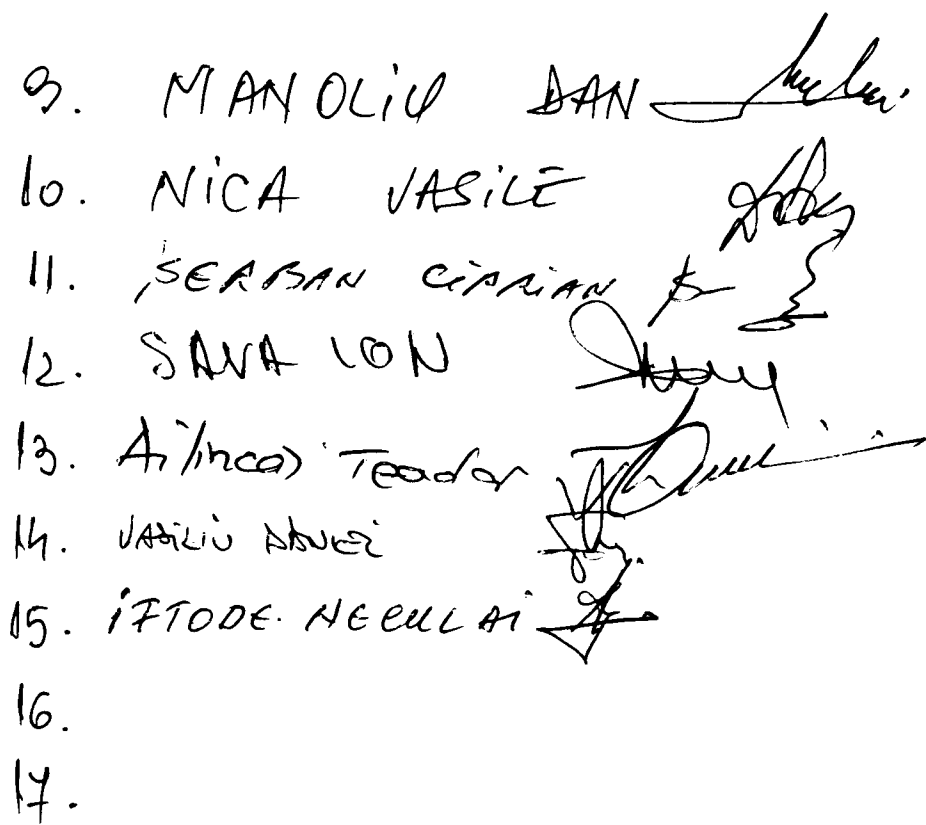 9. MANOLIU DAN
10. NICA VASILE
11. ȘERBAN CIPRIAN
12. SAVA ION
13. Ailincai Teodor
14. VASILIU
15. IFTODE NECULAI
16.
17.